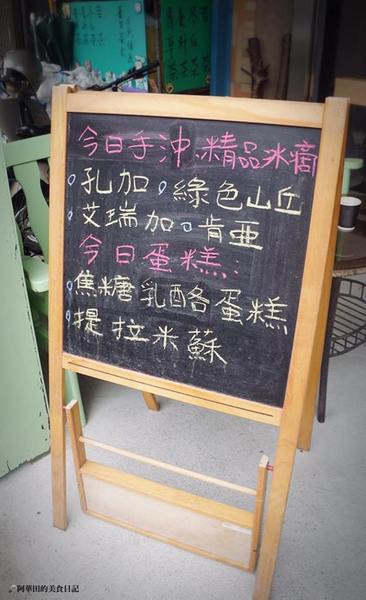 今日手沖.精品冰滴
孔加 綠色山丘
艾瑞加 肯亞
今日蛋糕:
焦糖乳酪各蛋糕
提拉米蘇
阿華田的美食日記